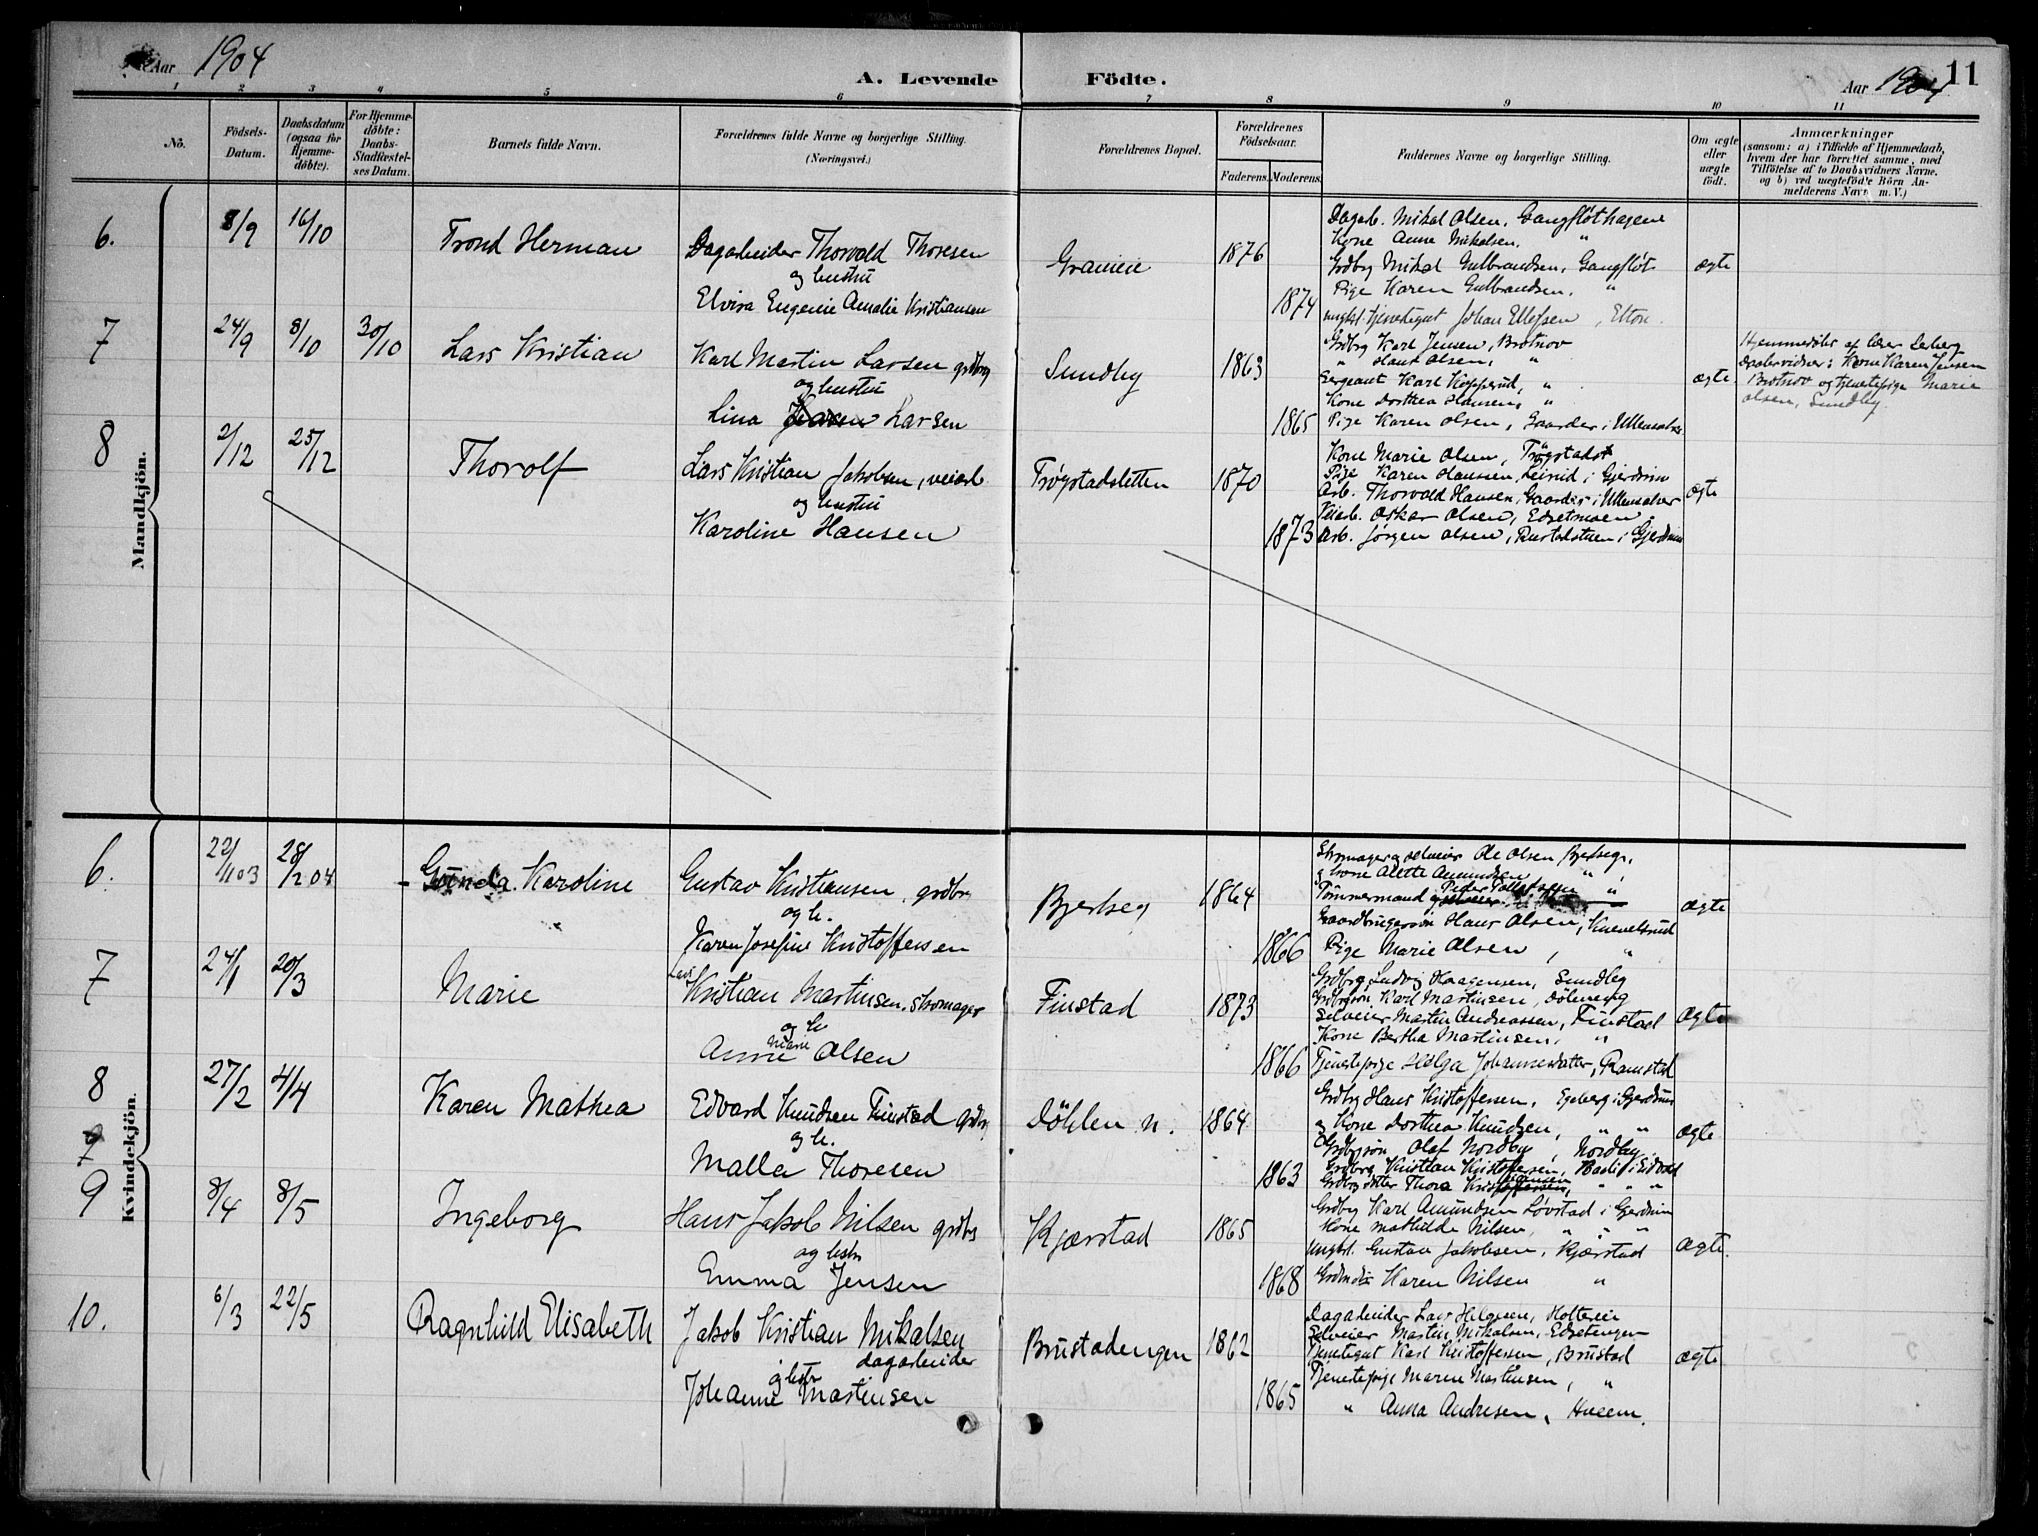 Aar 1904
A. Levende Födte.
Aar 1904 11
1 2 3 4 5 6 7 8 9 10 11
No.
Födsels-Datum.
Daabsdatum (ogsaa for Hjemmedöbte).
For Hjemmedöbte: Daabs-Stadfæstelses Datum.
Barnets fulde Navn.
Forældrenes fulde Navne og borgerlige Stilling. (Næringsvei.)
Forældrenes Bopæl.
Forældrenes Födselsaar.
Faderens. Moderens.
Faddernes Navne og borgerlige Stilling.
Om ægte eller uægte födt.
Anmærkninger
(saasom: a) i Tilfælde af Hjemmedaab, hvem der har forrettet samme, med Tilföielse af to Daabsvidners Navne. og b) ved uægtefödte Börn Anmelderens Navn m. V.)
Mandkjön.
6. 8/9 16/10 Trond Herman
Dagarbeider Thorvald Thoresen
og hustru
Elvira Eugenie Amalie Kristiansen
1876
1874
Dagarb. Mikal Olsen, Gangfløthagene
Kone Anne Mikalsen, "
Grdbr Mikal Gulbrandsen, Gangfløt
Pige Karen Gulbrandsen, "
ungk. tjenestegut Johan Ellefsen
ægte
7 24/9 8/10 30/10 Lars Kristian
Karl Martin Larsen grdbr
og hustru
Lina Larsen
Sundby
1863
1865
Grdbr Karl Jensen, Brotnov
" Hans Olsen, "
Sergeant Karl Kopperud, "
Kone Dorthea Hansen, "
Pige Karen Olsen, Gaarder i Ullensaker
ægte
Hjemmedöbt af lærer
Daabsvidner: Kone Karen Jensen
Brotnov og tjenestepige Marie
Olsen, Sundby.
8 2/12 25/12 Thorolf
Lars Kristian Jakobsen, veiarb
og hustru
Karoline Hansen
Trøgstadsletten
1870
1873
Kone Marie Olsen, Trøgstadst
Pige Karen Hansen, i Gjerdrum
Arb. Thorvald Hansen, Gaarder i Ullensaker
Veiarb. Oskar Olsen,
Arb. Jørgen Olsen, Rustadstuen i Gjerdrum
ægte
Kvindekjön.
6. 22/11 03 28/2 04 Gunda Karoline
Gustav Kristiansen, grdbr
og h.
Karen Josefine Kristoffersen
Bjerkeg
1864
1866
Skomager og selveier Ole Olsen Bjerkeg,
og kone Alette Amundsen "
Tømmermand Peder "
Gaardbrugersøn Hans Olsen,
Pige Marie Olsen, "
ægte
7 24/1 20/3 Marie
Lars Kristian Martinsen, skomager
og h
Anne Marie Olsen
Finstad
1873
1866
Grdbr Ludvig Haagensen, Sundby
Grdbrsøn Karl Martinsen,
Selveier Martin Andreassen, Finstad
Kone Bertha Martinsen, "
Tjenestepige Helga Johannesdatter, Ramstad
ægte
8 27/2 4/4 Karen Mathea
Edvard Knudsen Finstad grdbr
og h.
Malla Thoresen
Döhlen n.
1864
1863
Grdbr Hans Kristoffersen, Egeberg i Gjerdrum
og Kone Dorthea Knudsen, " "
Grdbrsøn Olaf Nordby, Nordby
Grdbr Kristian Kristoffersen,
Grdbr datter Thora " " "
ægte
9 8/4 8/5 Ingeborg
Hans Jakob Nilsen grdbr
og hstr
Emma Jensen
Kjærstad
1865
1868
Grdbr Karl Amundsen Løvstad i Gjerdrum
Kone Mathilde Nilsen, " " "
Ungk. Gustav Jakobsen, Kjærstad
Karen Nilsen "
ægte.
10. 6/3 22/5 Ragnhild Elisabeth
Jakob Kristian Mikalsen
dagarbeider
og hstr
Johanne Martinsen
Brustadengen
1862
1865
Dagarbeider Lars Helgesen, Holterei
Selveier Martin Mikalsen,
Tjenestegut Karl Kristoffersen, Brustad
Tjenestepige Maren Martinsen, "
" Anna Andresen,
ægte